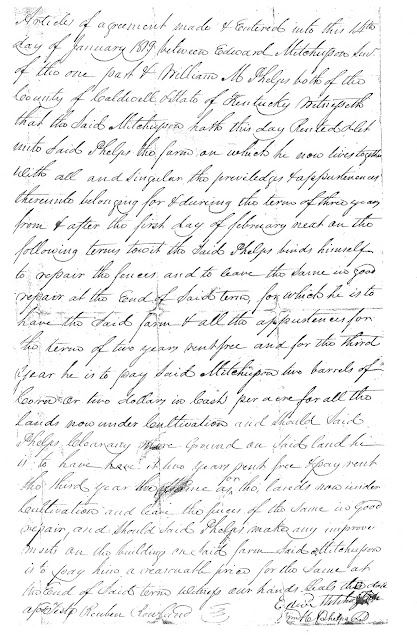 Articles of agreement made & Entered into this 14th
day of January 1819 between Edward Mitchusson Senr
of the one part & William M Phelps both of the
County of Caldwell & State of Kentucky Witnesseth
that the Said Mitchusson hath this day Rented & let
unto Said Phelps the farm on which he now lives together
With all and Singular the previledges & appurtenences
thereunto belonging for & dureing the term of three years
from & after the first day of february next on the
following terms towit the Said Phelps binds himself
to repair the fences and to leave the Same in good
repair at the End of Said term, for which he is to
have the Said farm & all the appurtences for
the term of two years rent free and for the third
year he is to pay Said Mitchusson two barrels of
Corn or two dollars in Cash per acre for all the
Lands now under Cultivation and Should Said
Phelps Clear any more Ground on Said land he
is to have it two years rent free & pay rent
the third year the same as for the lands now under
Cultivation and leave the fences of the Same in good
repair, and Should Said Phelps make any improve
ments on the building on Said farm Said Mitchusson
is to pay him a reasonable price for the Same at
the End of Said term witness our hands & Seals the date
above
Test Reuben Rowland
Edwd Mitchusson
Wm M Phelps